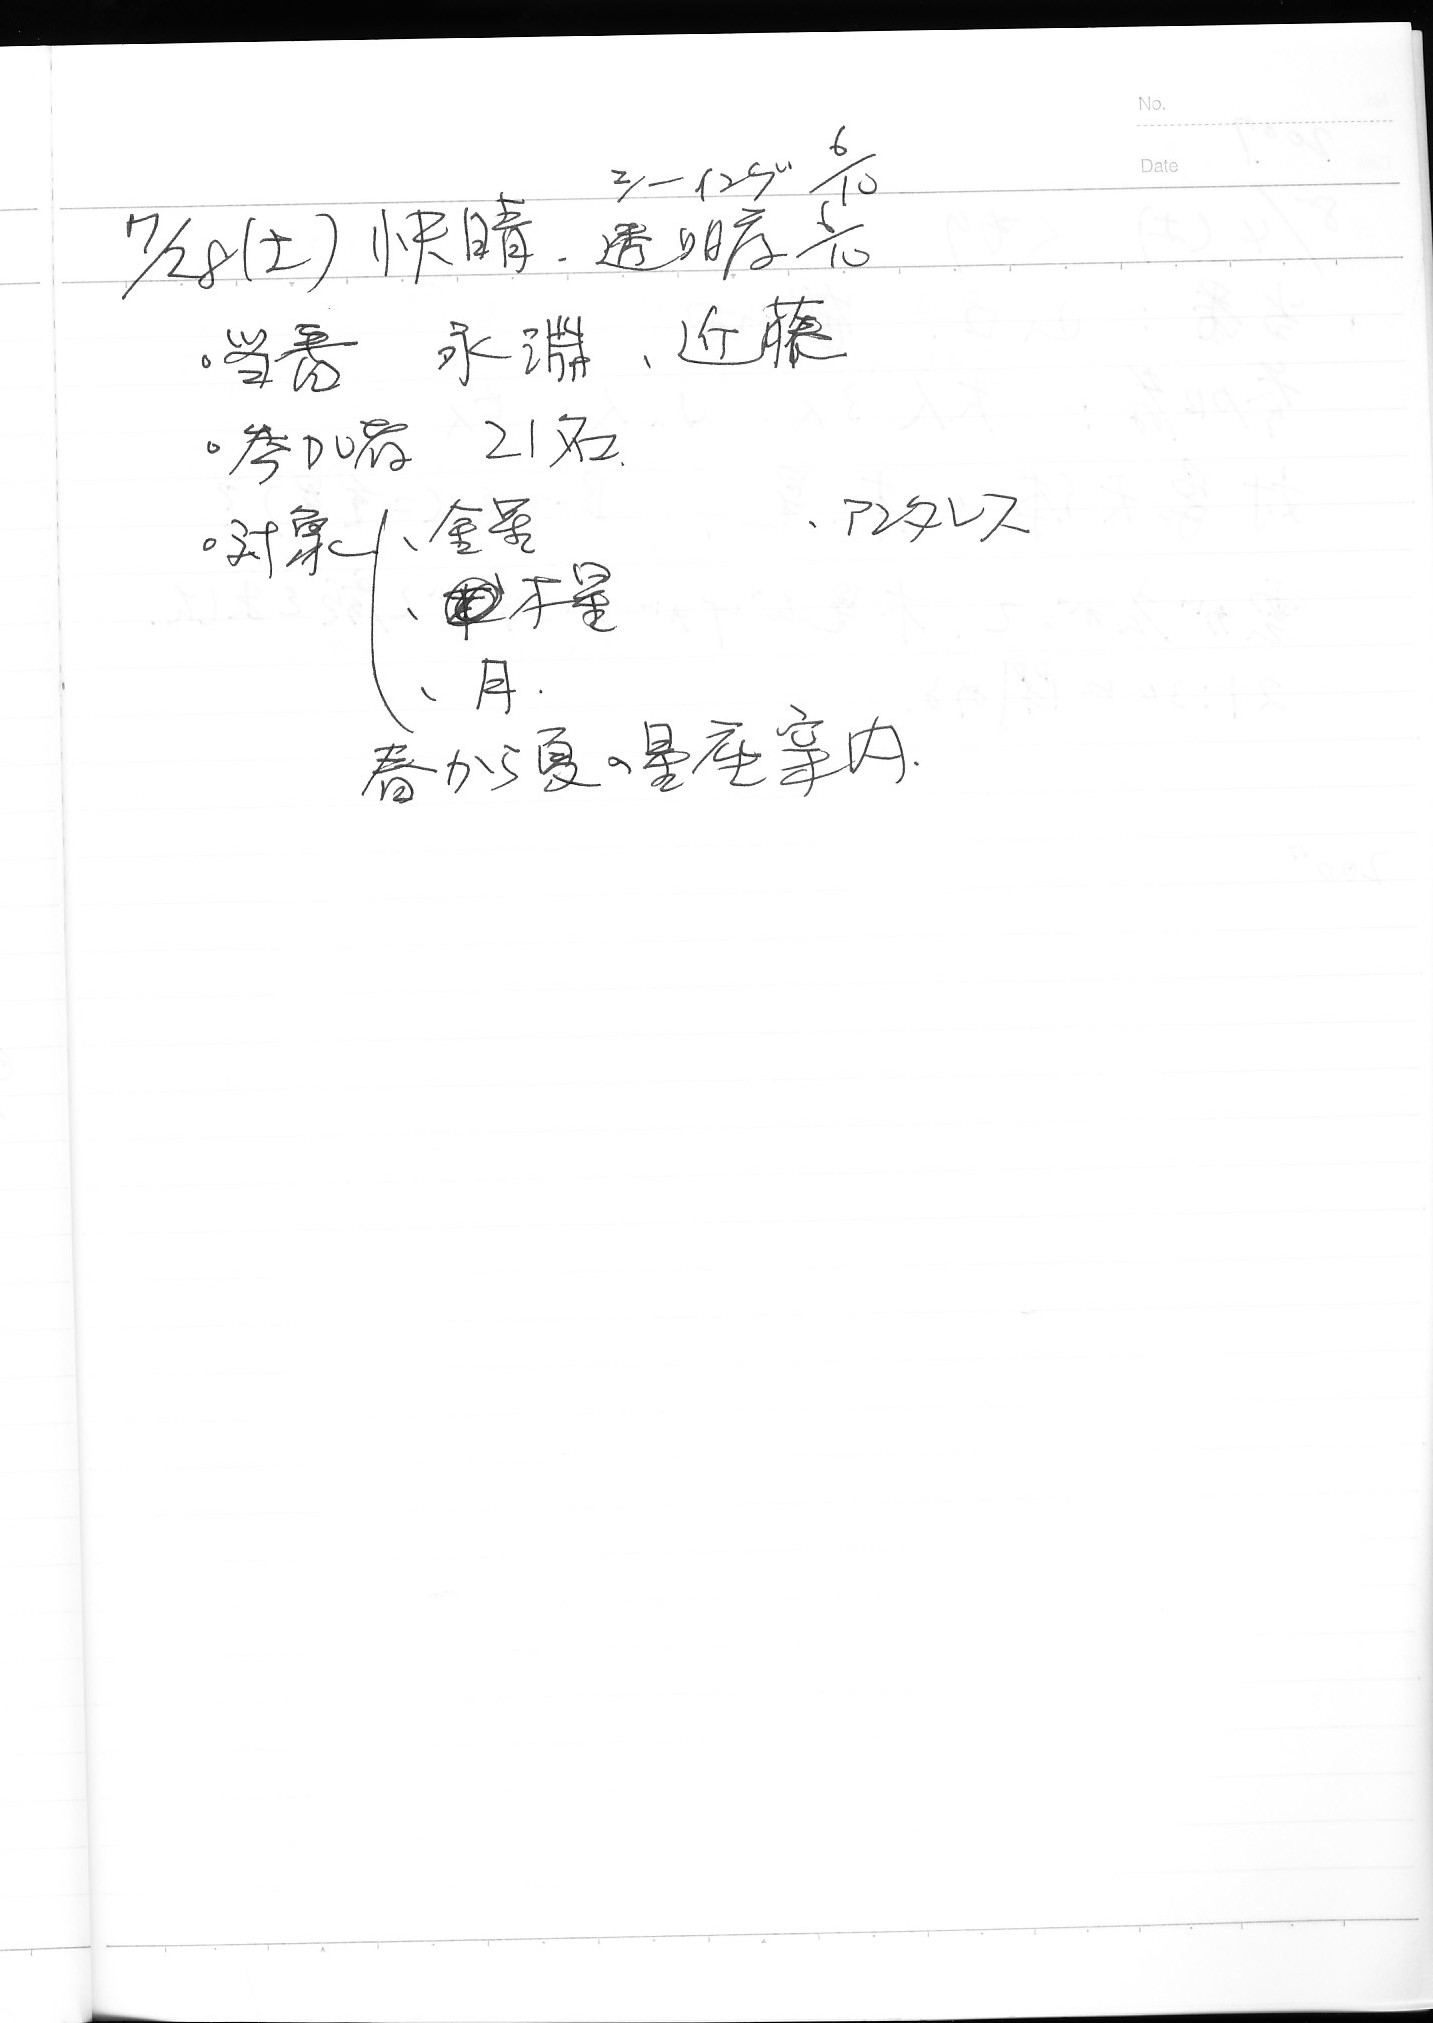 No.
Date
シーイング 6/10
7/28(土) 快晴. 透明度 6/10
・当番 永淵、近藤
・参加者 21名.
・対象 、金星 、アンタレス
、木星
、月.
春から夏の星座案内.